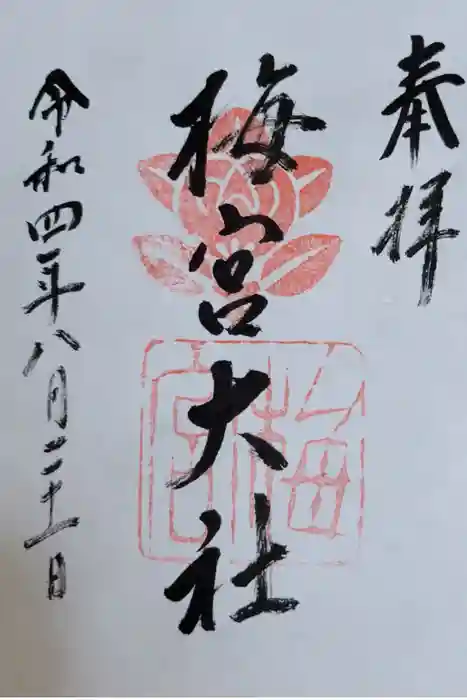 奉拝
梅宮大社
令和四年八月二十一日
梅宮